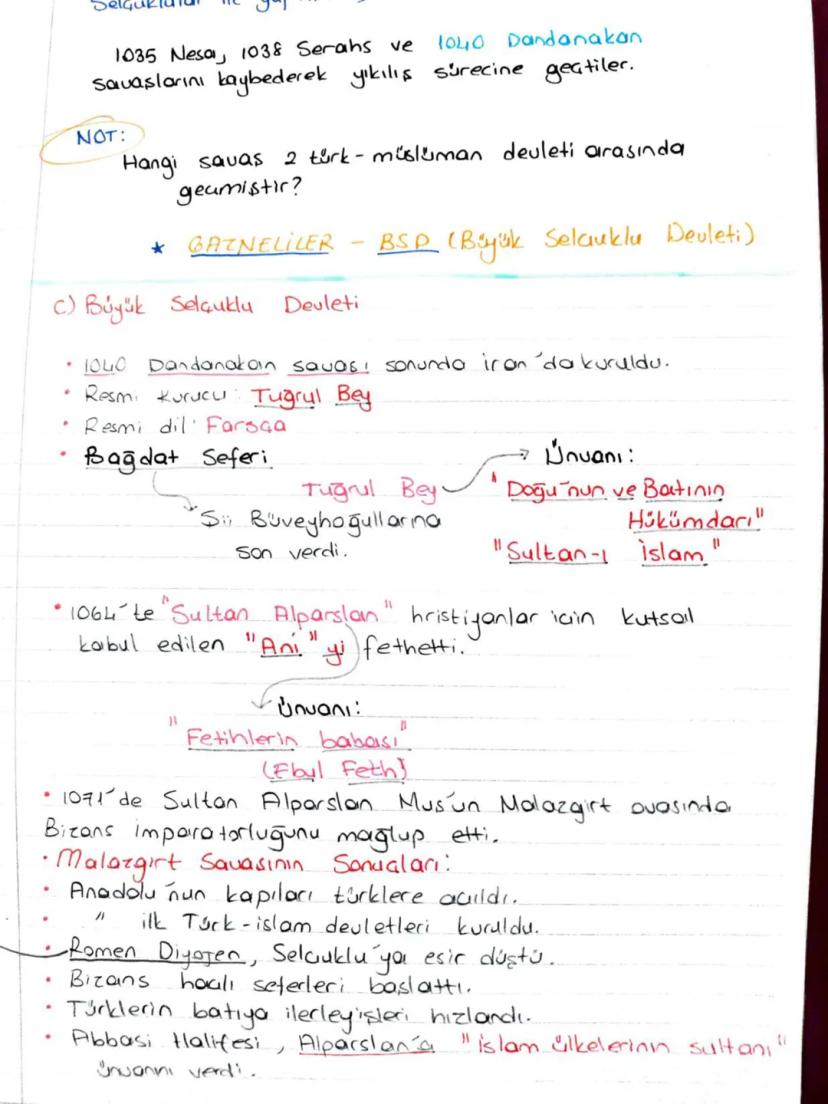 1035 Nesa, 1038 Serahs ve 1040 Dandanakan
savaşlarını kaybederek yıkılış sürecine geçtiler.
NOT:
Hangi savaş 2 türk-müslüman devleti arasında
geçmiştir?
* GAZNELİLER - BSD (Büyük Selçuklu Devleti)
c) Büyük Selçuklu Devleti
• 1040 Dandanakan savaşı sonunda iran'da kuruldu.
• Resmi kurucu: Tuğrul Bey
• Resmi dil: Farsça
• Bağdat Seferi → Ünvanı:
Tuğrul Bey "Doğu'nun ve Batının
Şii Büveyhoğullarına Hükümdarı"
son verdi. "Sultan-ı İslam"
• 1064'te "Sultan Alparslan" hristiyanlar için kutsal
kabul edilen "Ani"yi fethetti.
Ünvanı:
"Fetihlerin babası"
(Ebul Feth)
• 1071'de Sultan Alparslan Mus'un Malazgirt ovasında
Bizans imparatorluğunu mağlup etti.
• Malazgirt Savaşının Sonuçları:
• Anadolu'nun kapıları türklere açıldı.
• " ilk Türk-islam devletleri kuruldu.
• Romen Diyojen, Selçuklu'ya esir düştü.
• Bizans haçlı seferleri başlattı.
• Türklerin batıya ilerleyişleri hızlandı.
• Abbasi Halifesi, Alparslan'a "islam ülkelerinin sultanı"
ünvanını verdi.